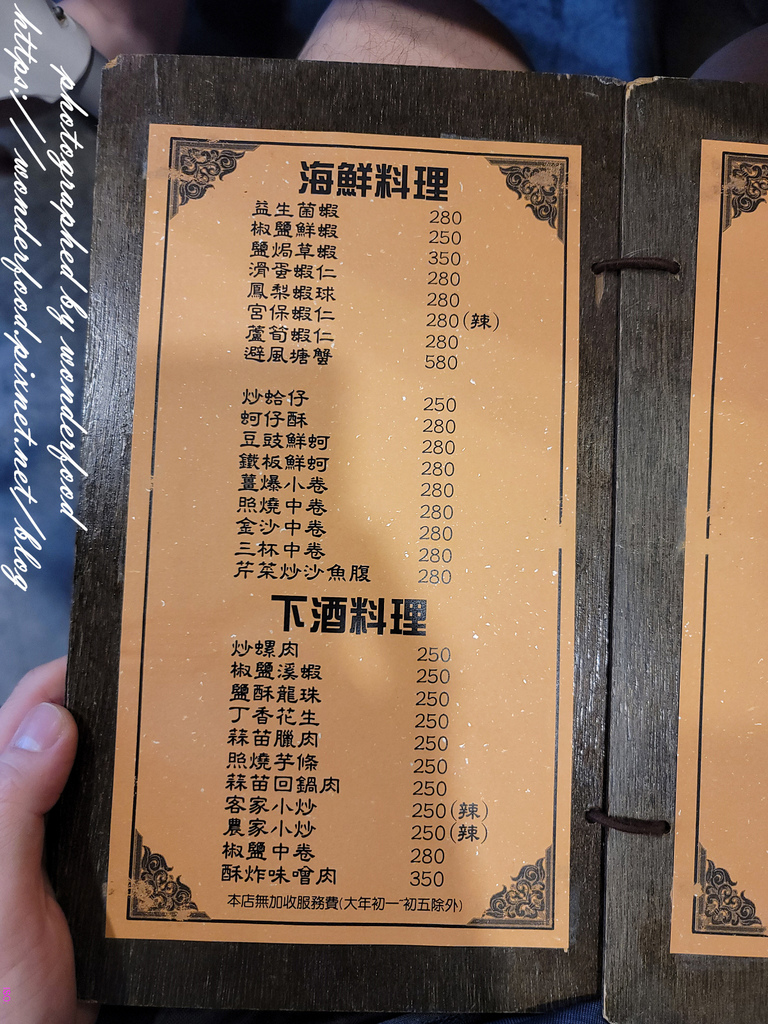 海鮮料理
益生菌蝦 280
椒鹽鮮蝦 250
鹽焗草蝦 350
滑蛋蝦仁 280
鳳梨蝦球 280
宮保蝦仁 280(辣)
蘆筍蝦仁 280
避風塘蟹 580
炒蛤仔 250
蚵仔酥 280
豆豉鮮蚵 280
鐵板鮮蚵 280
薑爆小卷 280
照燒中卷 280
金沙中卷 280
三杯中卷 280
芹菜炒沙魚腹 280
下酒料理
炒螺肉 250
椒鹽溪蝦 250
鹽酥龍珠 250
丁香花生 250
蒜苗臘肉 250
照燒芋條 250
蒜苗回鍋肉 250
客家小炒 250(辣)
農家小炒 250(辣)
椒鹽中卷 280
酥炸味噌肉 350
本店無加收服務費(大年初一~初五除外)
photographed by wonderfood
https://wonderfood.pixnet.net/blog